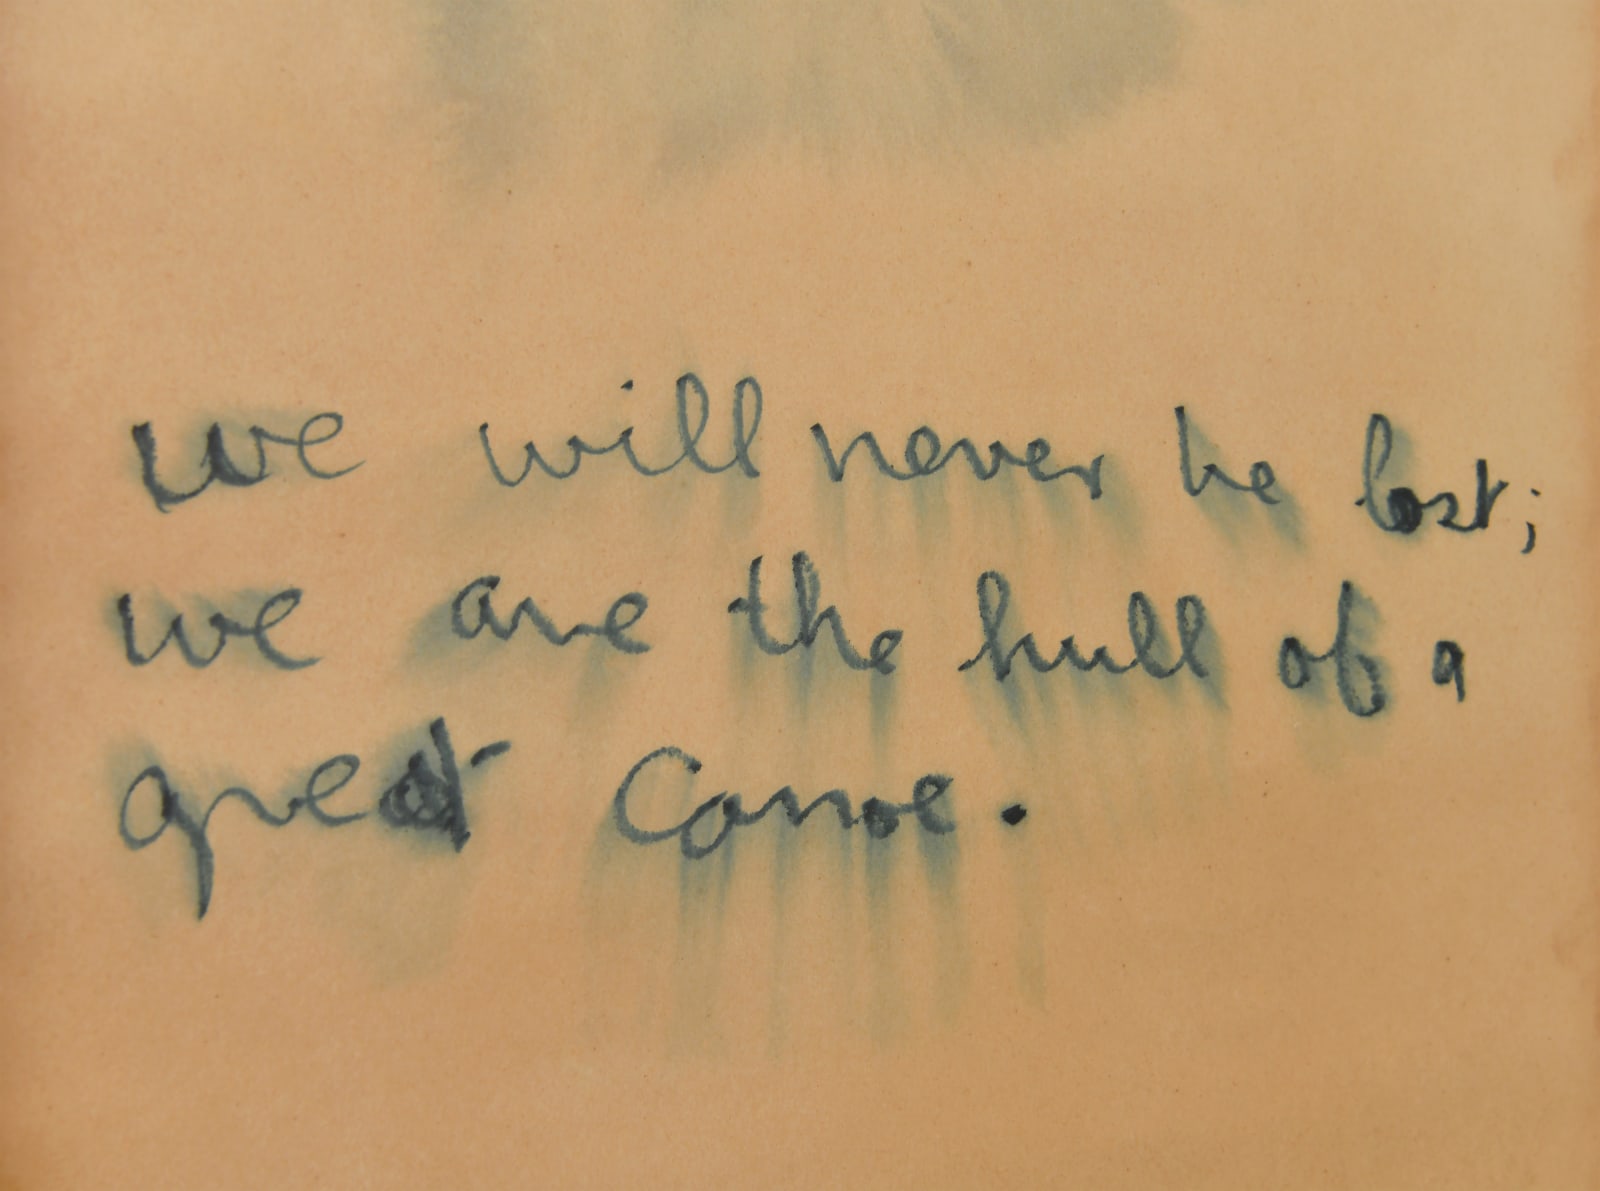 we will never be lost;
we are the hull of a
great canoe.